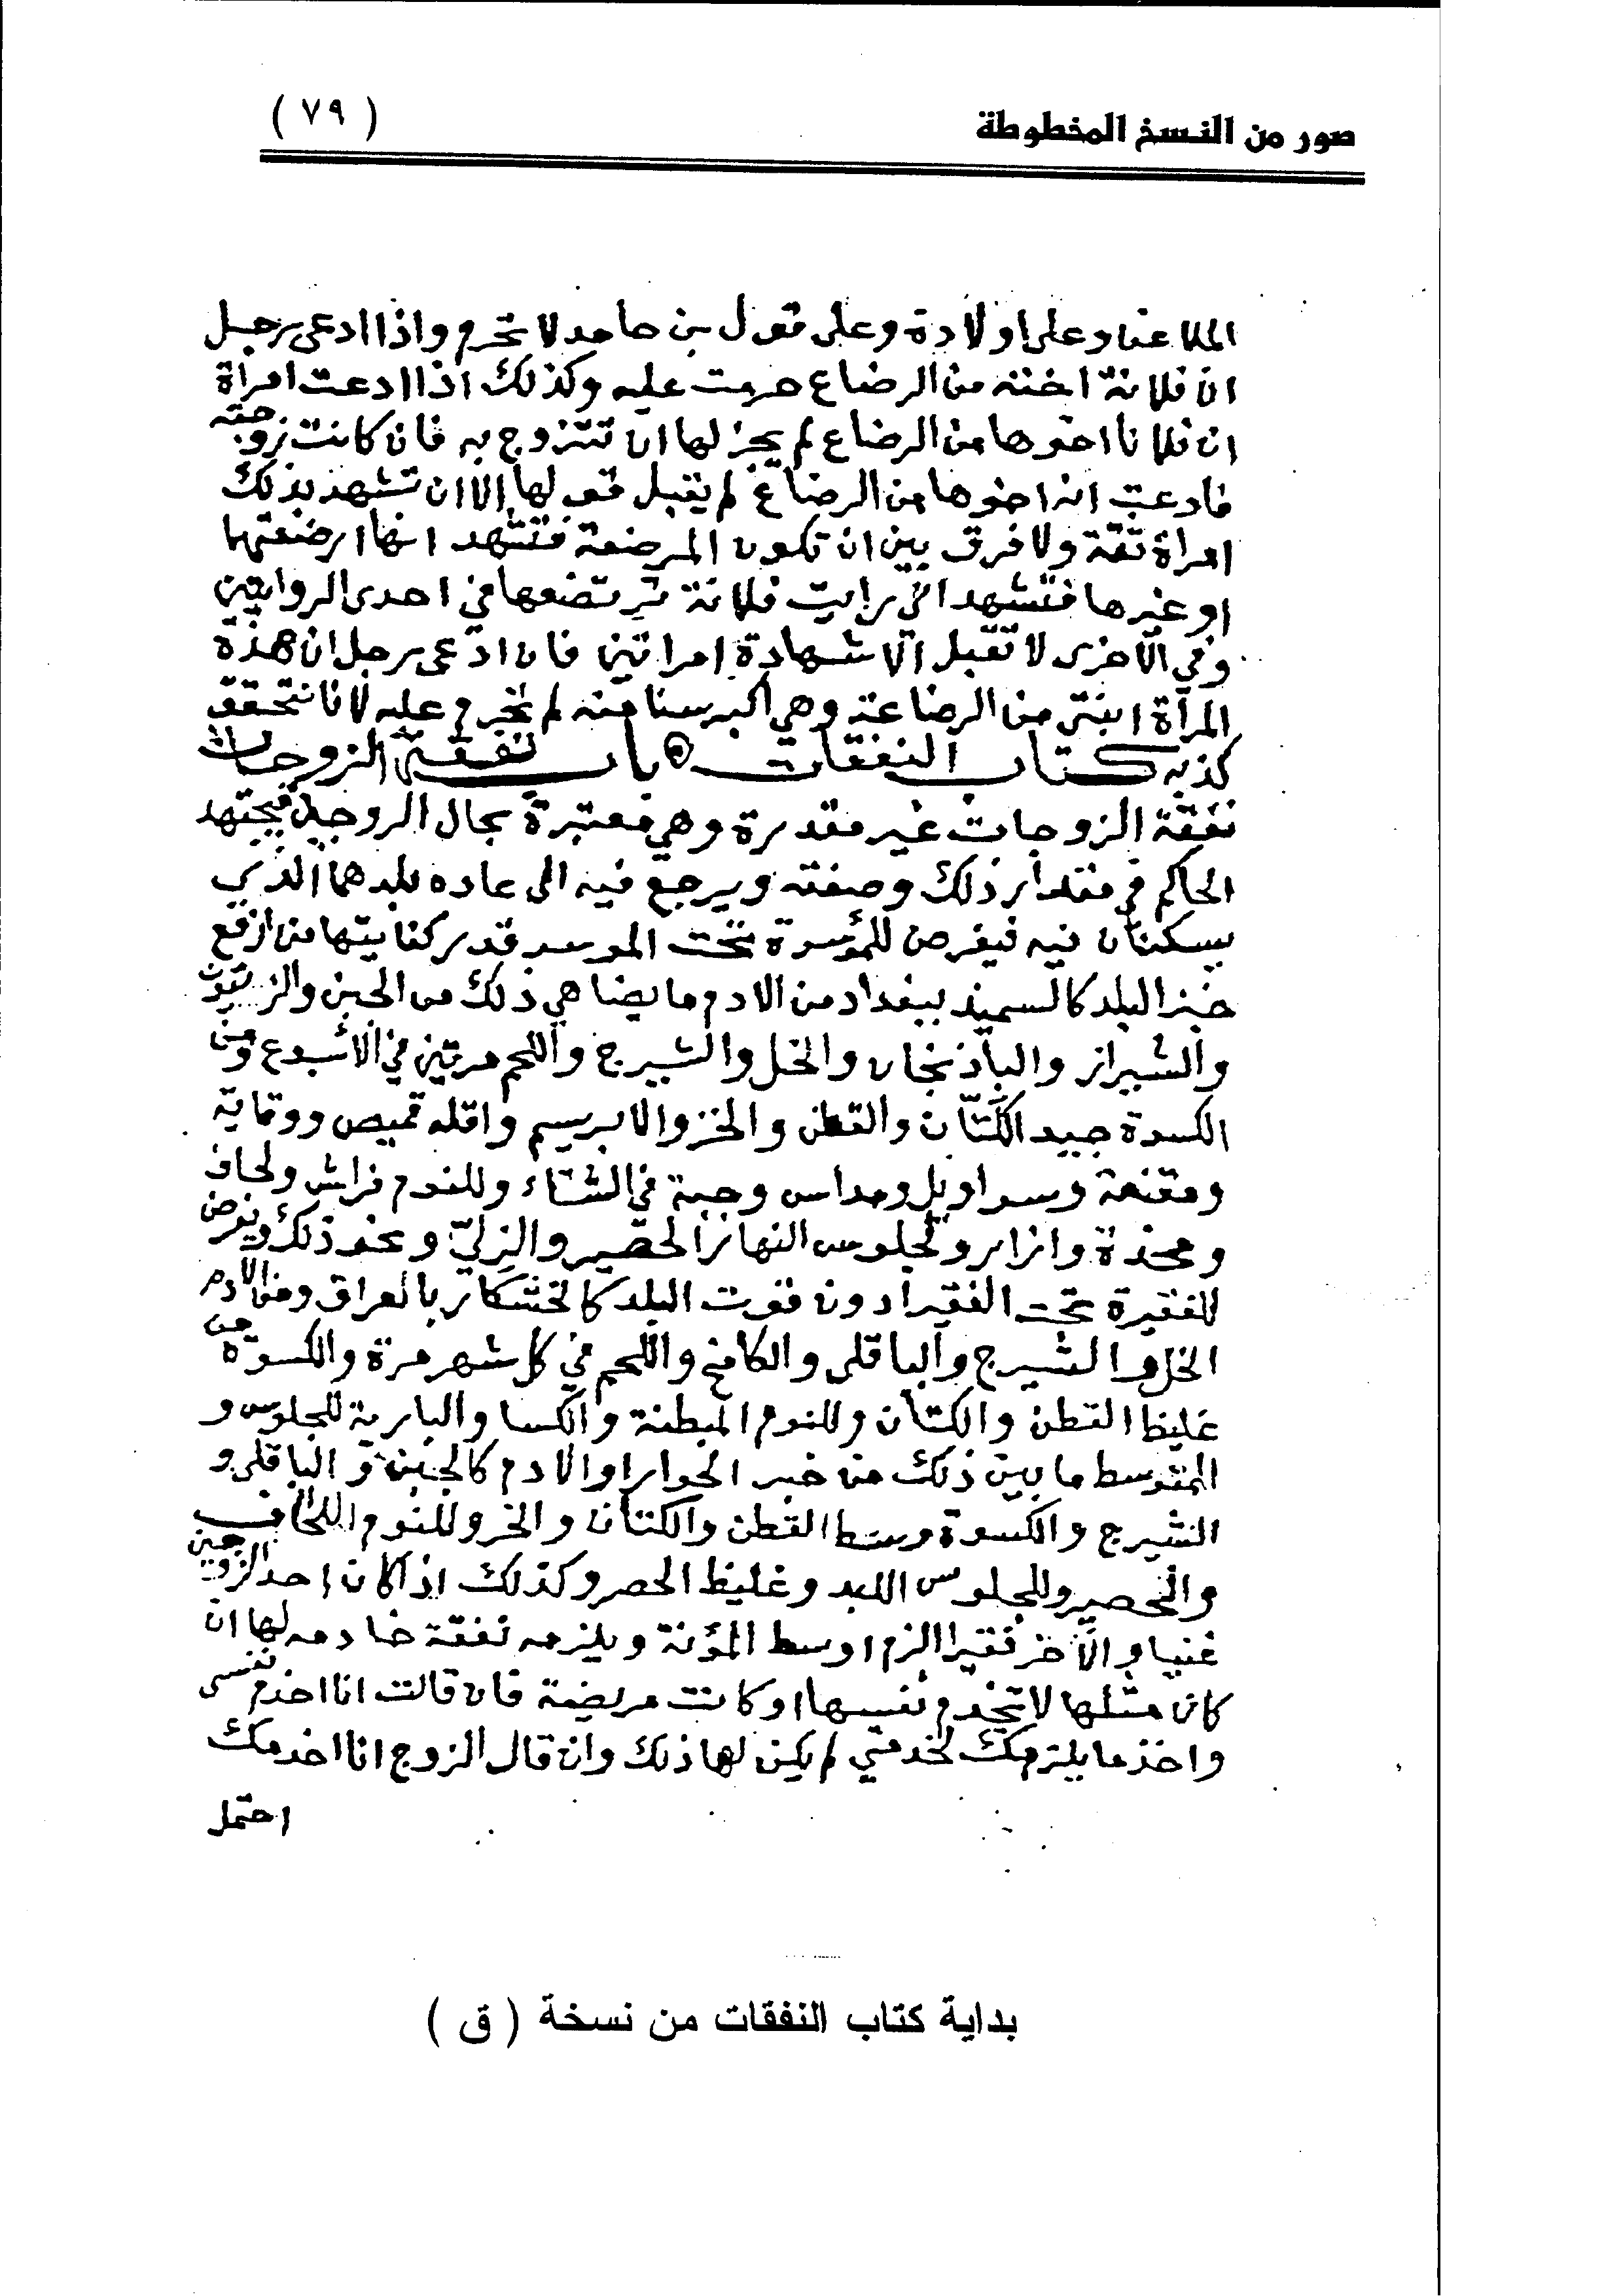 صور من النسخ المخطوطة
( ٧٩ )
الملاعن وعلى اولاده وعلى قول بن حامد لا تحرم واذا ادعى رجل
ان فلانة اخته من الرضاع حرمت عليه وكذلك اذا ادعت امرأة
ان فلانا اخوها من الرضاع لم يجز لها ان تتزوج به فان كانت زوجته
فادعت انه اخوها من الرضاع لم يقبل قولها إلا ان تشهد بذلك
امراة ثقة ولا فرق بين ان تكون المرضعة فتشهد انها ارضعتهما
او غيرها فتشهد اني رايت فلانة ترتضعها في احدى الروايتين
وفي الاخرى لا تقبل الا شهادة امراتين فان ادعى رجل ان هذه
المرأة ابنتي من الرضاعة وهي أكبر سنا منه لم تحرم عليه لانا نتحقق
كذبه كتاب النفقات باب نفقة الزوجات
نفقة الزوجات غير مقدرة وهي معتبرة بحال الزوجين فيجتهد
الحاكم في مقدار ذلك وصفته ويرجع فيه الى عاده بلدهما الذي
يسكنان فيه فيفرض للمؤسرة تحت الموسر قدر كفايتها من ارفع
خبز البلد كالسميذ ببغداد من الادم ما يضاهي ذلك من الجبن والزيتون
والشيراز والباذنجان والخل والشيرج واللحم مرتين في الأسبوع ومن
الكسوة جيد الكتّان والقطن والخز والابريسم واقله قميص ووقاية
ومقنعة وسراويل ومداس وجبة في الشتاء وللنوم فراش ولحاف
ومخدة وازار ولجلوس النهار الحصير والزليّ ونحو ذلك ويفرض
للفقيرة تحت الفقير ادون قوت البلد كالخشكار بالعراق ومن الادم
الخل والشيرج والباقلى والكامخ واللحم في كل شهر مرة والكسوة من
غليظ القطن والكتان وللنوم المبطنة والكسا والبارية للجلوس و
المتوسط ما بين ذلك من خبز الحوارا والادم كالجبن و الباقلى و
الشيرج والكسوة وسط القطن والكتان والخز وللنوم اللحاف
والحصير وللجلوس اللبد وغليظ الحصر وكذلك اذا كان احد الزوجين
غنيا والآخر فقيرا الزم اوسط المؤنة ويلزمه نفقة خادمه لها ان
كان مثلها لا تخدم نفسها او كانت مريضة فان قالت انا اخدم نفسى
واخذ ما يلزمك لخدمتي لم يكن لها ذلك وان قال الزوج انا اخدمك
احتمل
بداية كتاب النفقات من نسخة ( ق )